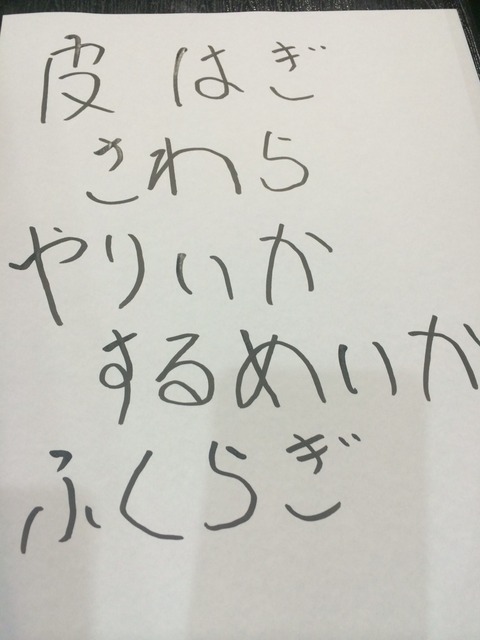 皮はぎ
さわら
やりいか
するめいか
ふくらぎ